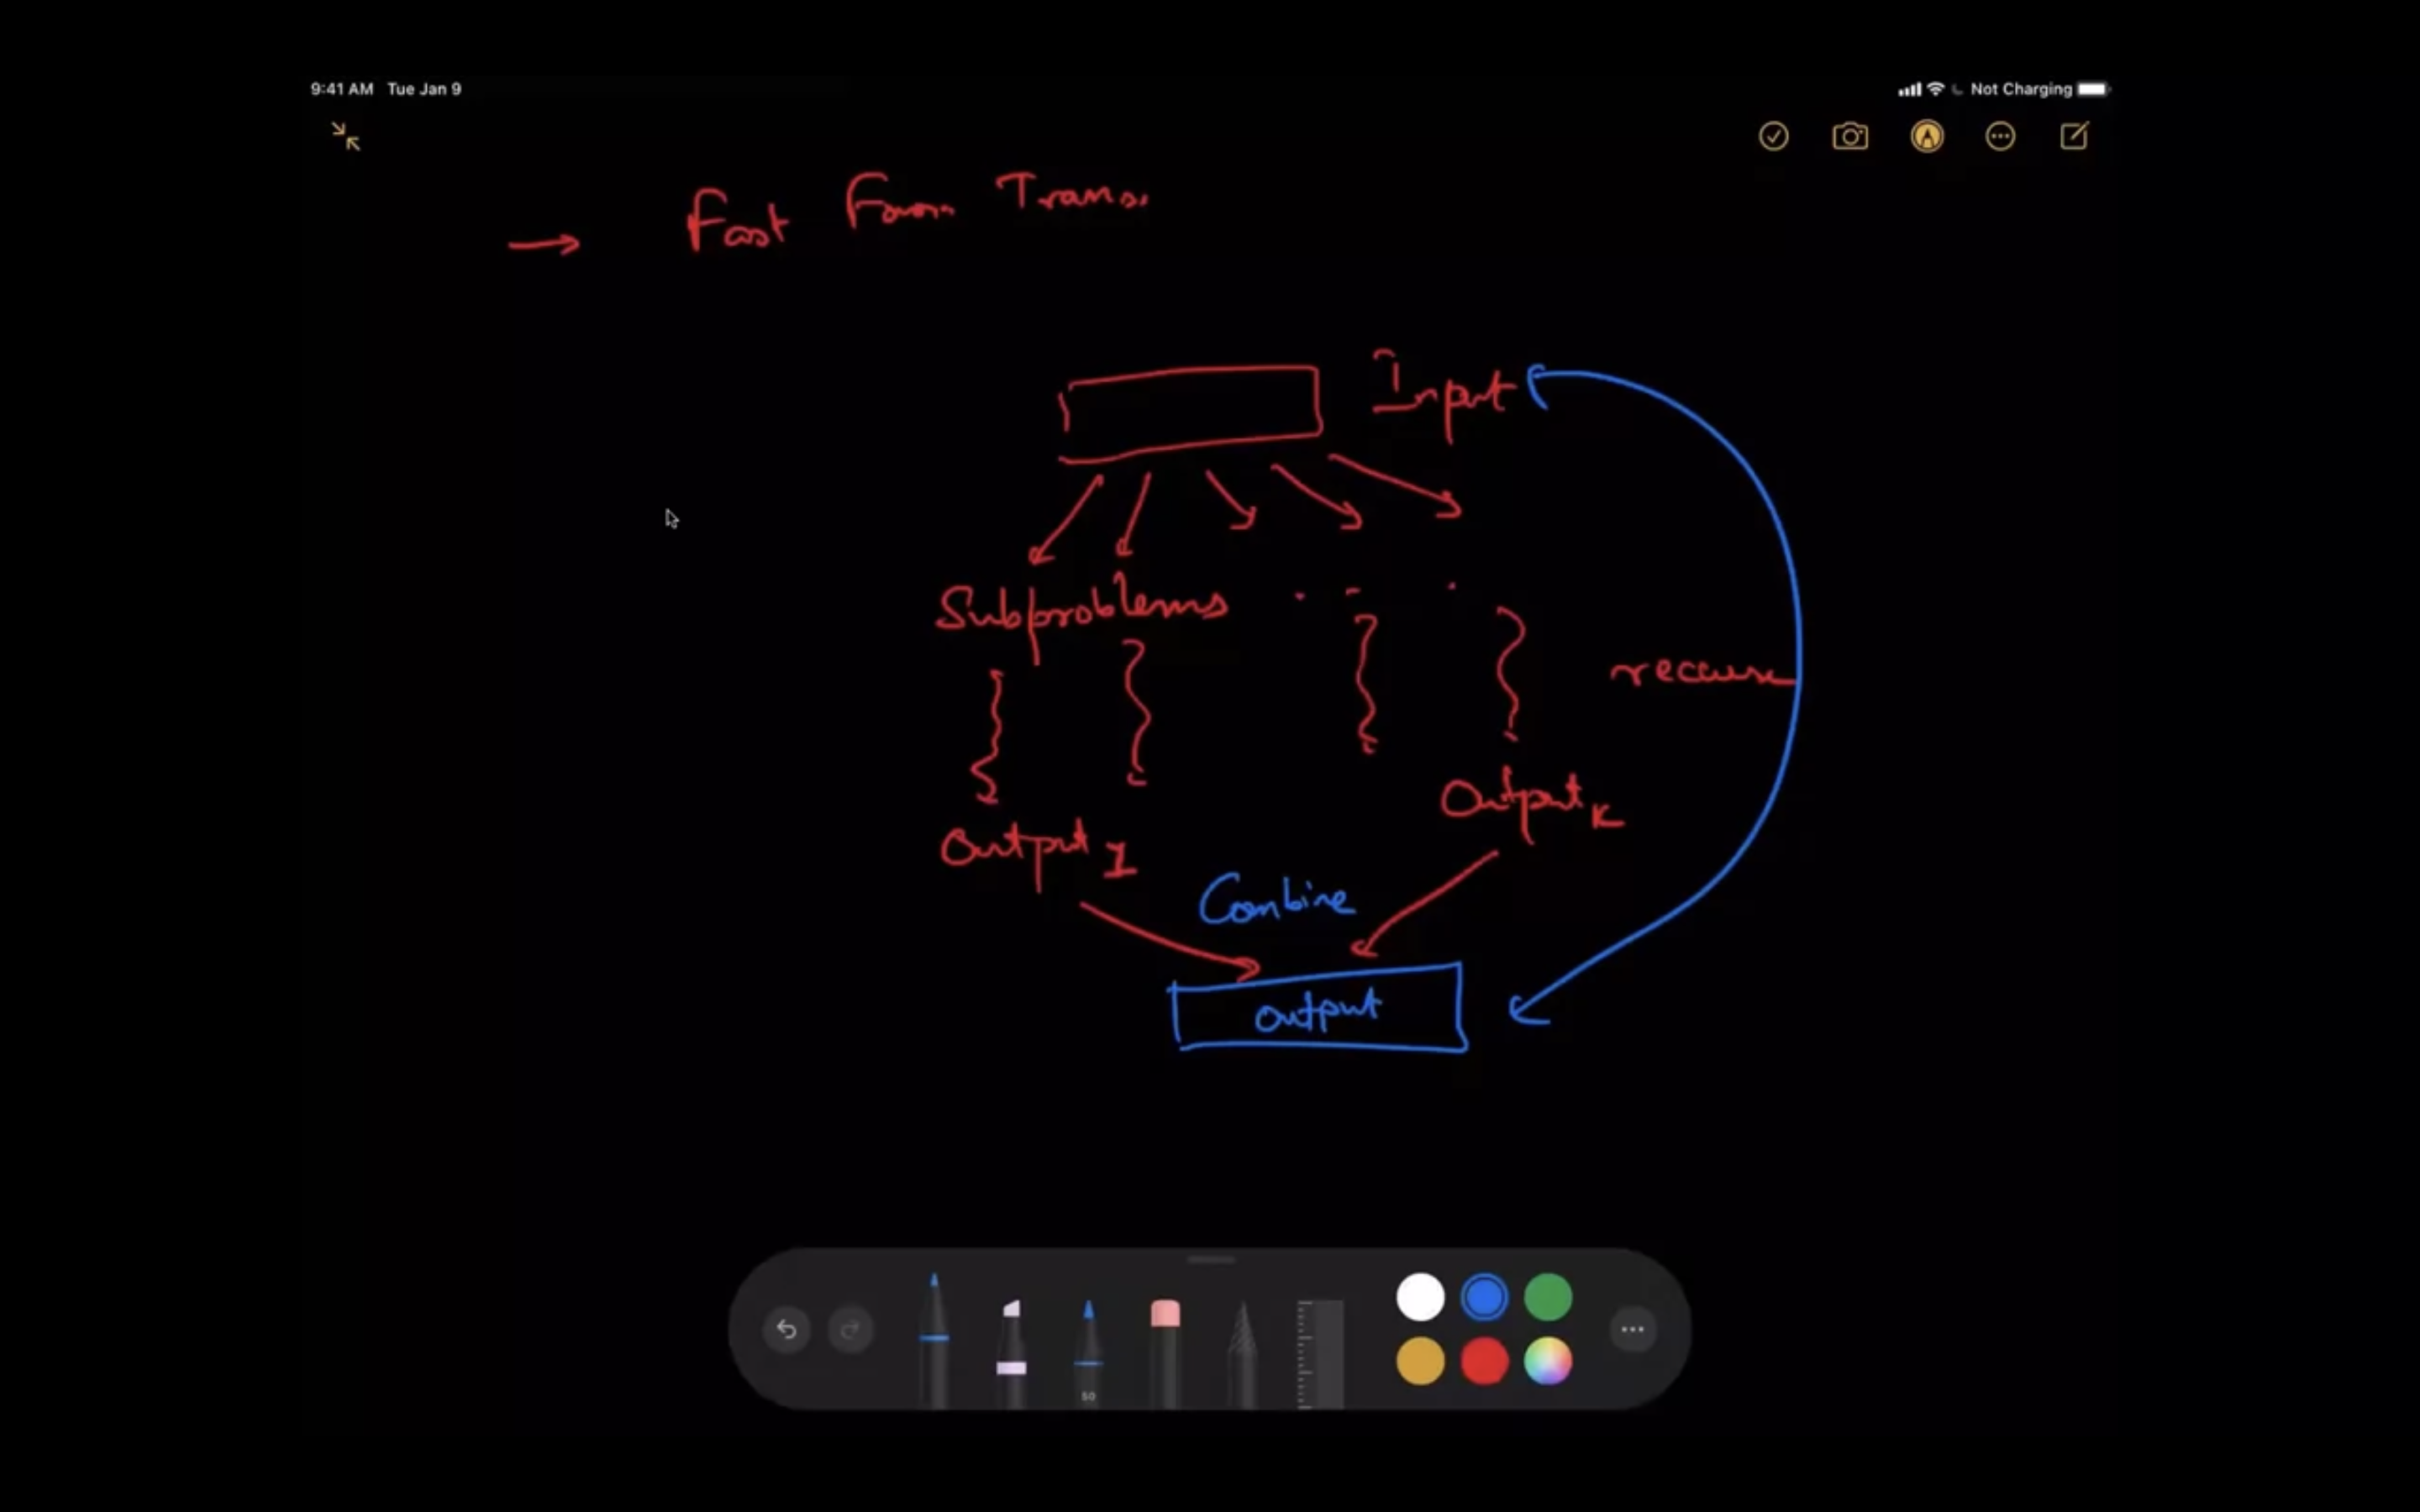 9:41 AM Tue Jan 9
Not Charging
→ Fast Trans.
Input
Subproblems . . .
recurse
Output K
Output 1
Combine
Output
50